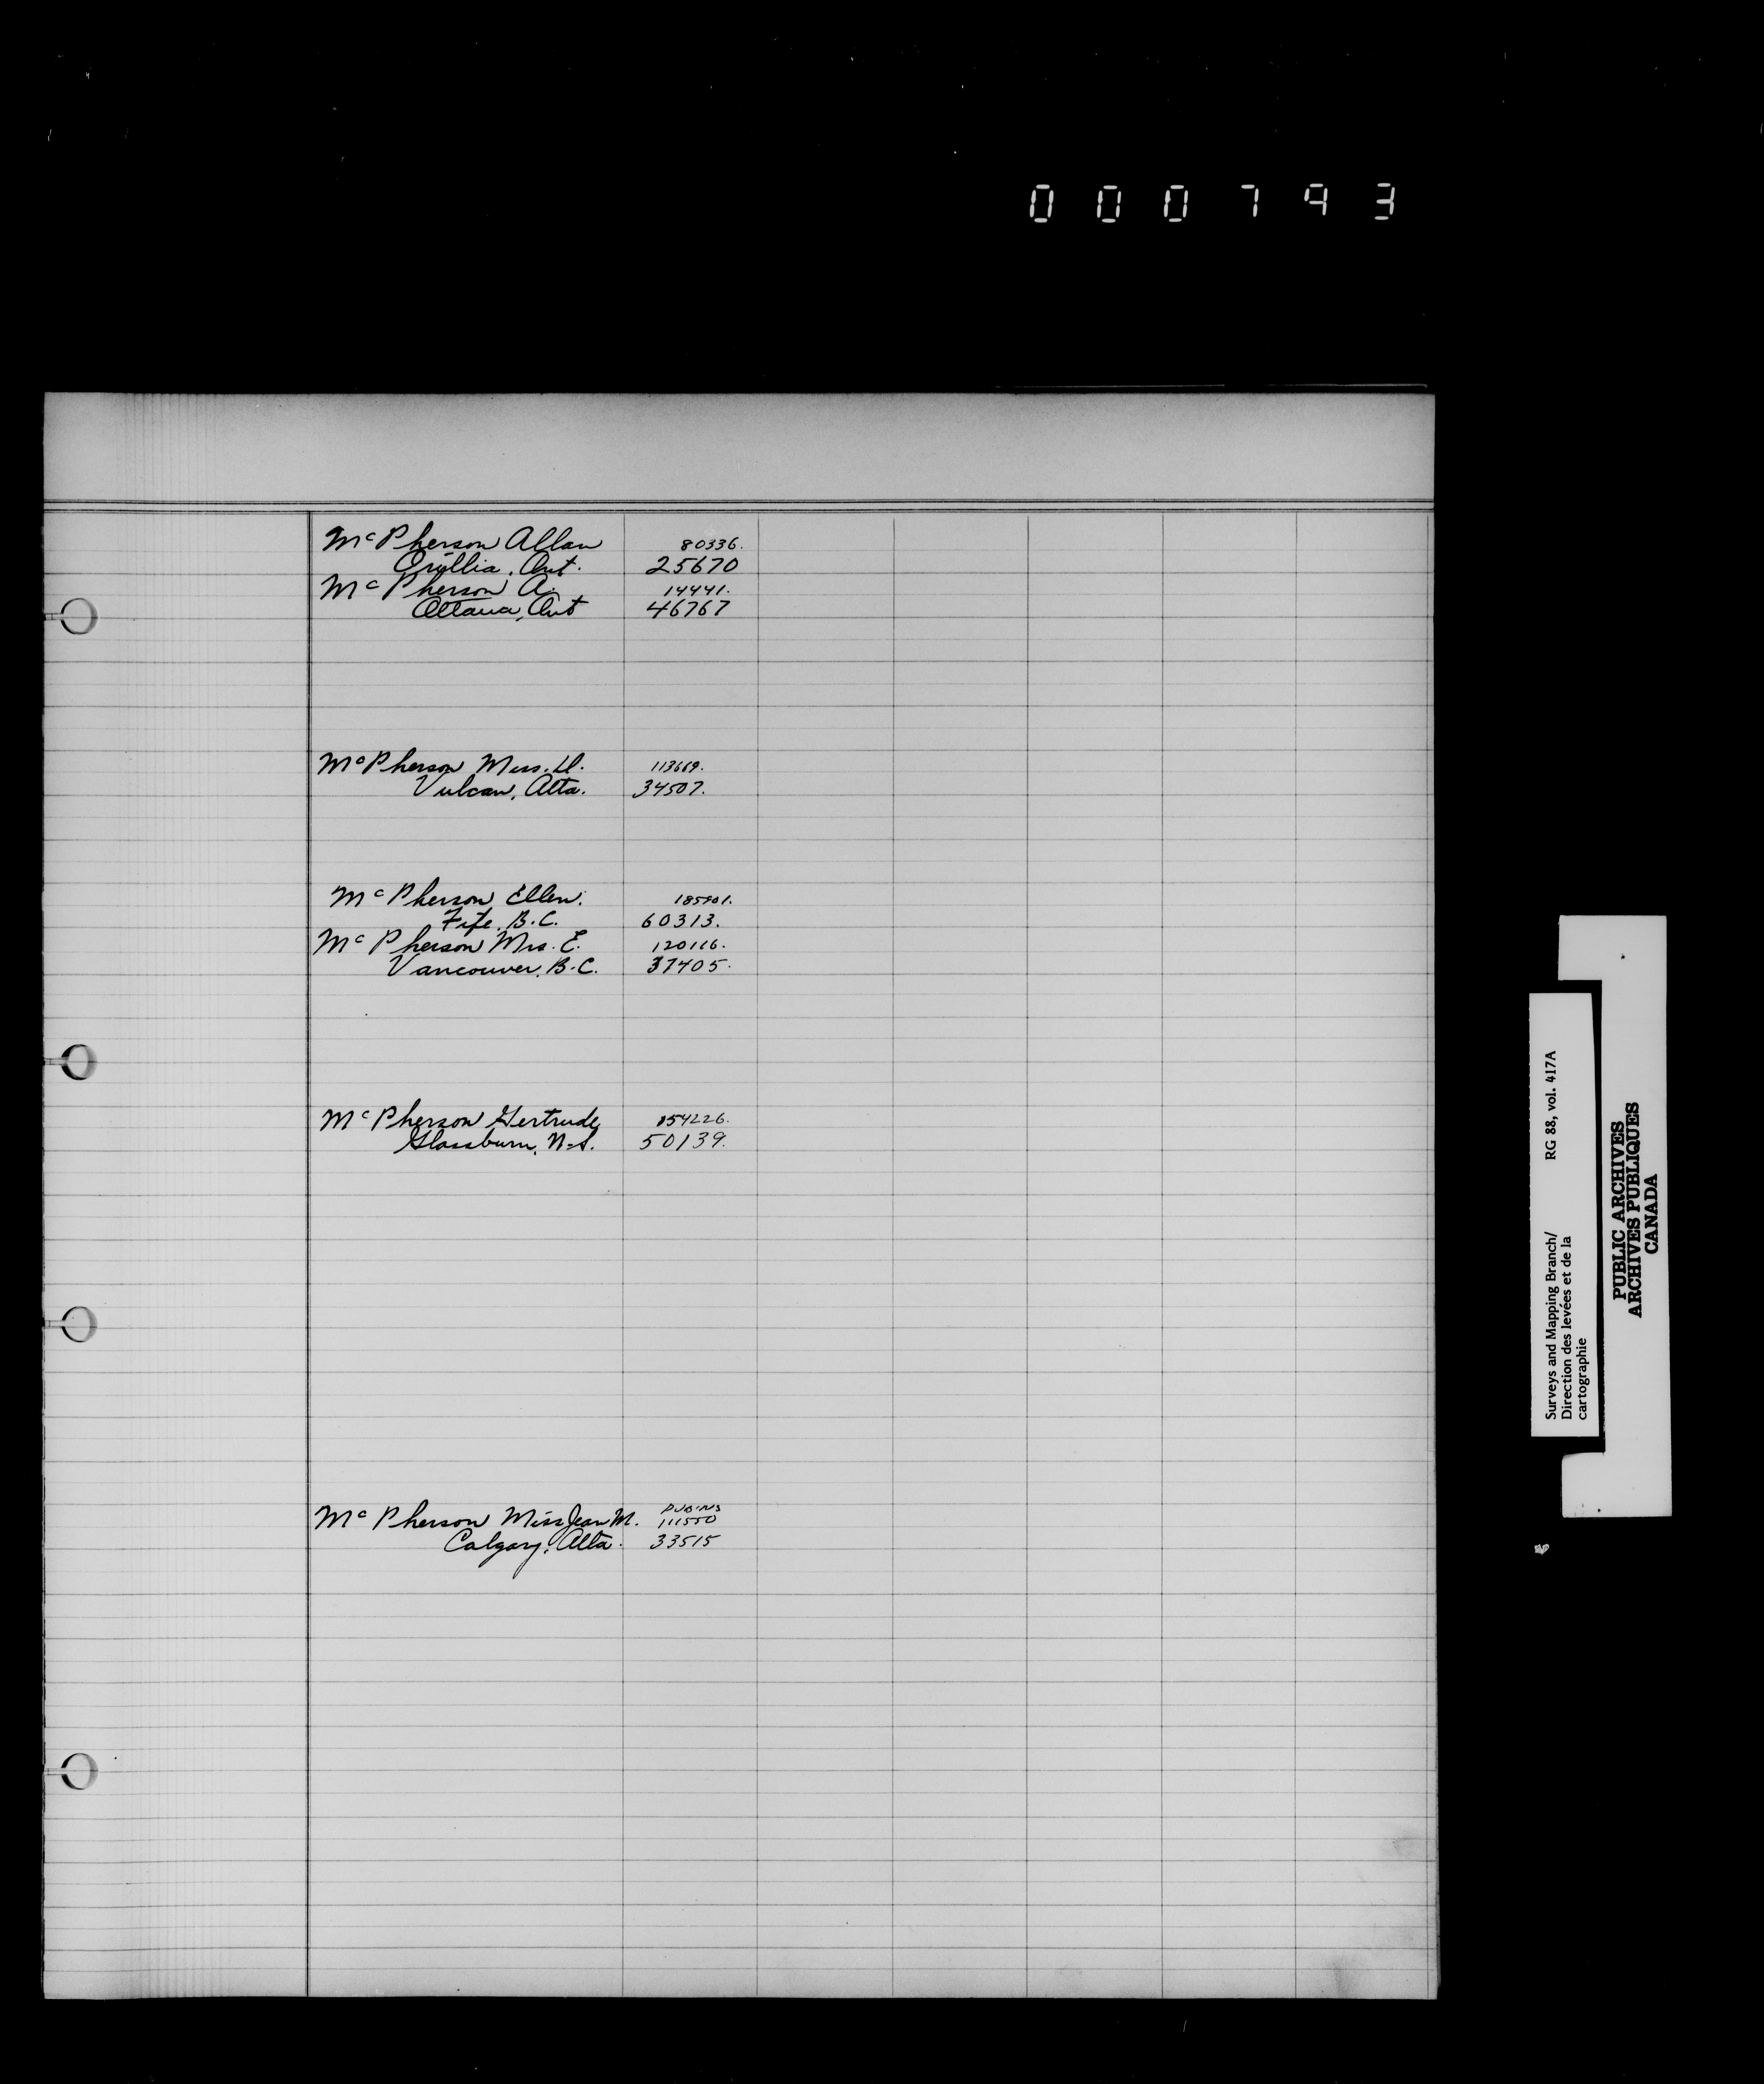 000793
McPherson Allan 80336.
Orillia, Ont. 25670
McPherson A. 14441.
Ottawa, Ont 46767
McPherson Miss. D. 113669.
Vulcan, Alta. 34507.
McPherson Ellen. 185901.
Fife, B.C. 60313.
McPherson Mrs. E. 120116.
Vancouver, B.C. 37405.
McPherson Gertrude 154226.
Glassburn, N.S. 50139.
McPherson Miss Jean M. 111550
Calgary, Alta. 33515
Surveys and Mapping Branch/ RG 88, vol. 417A
Direction des levées et de la
cartographie
PUBLIC ARCHIVES
ARCHIVES PUBLIQUES
CANADA